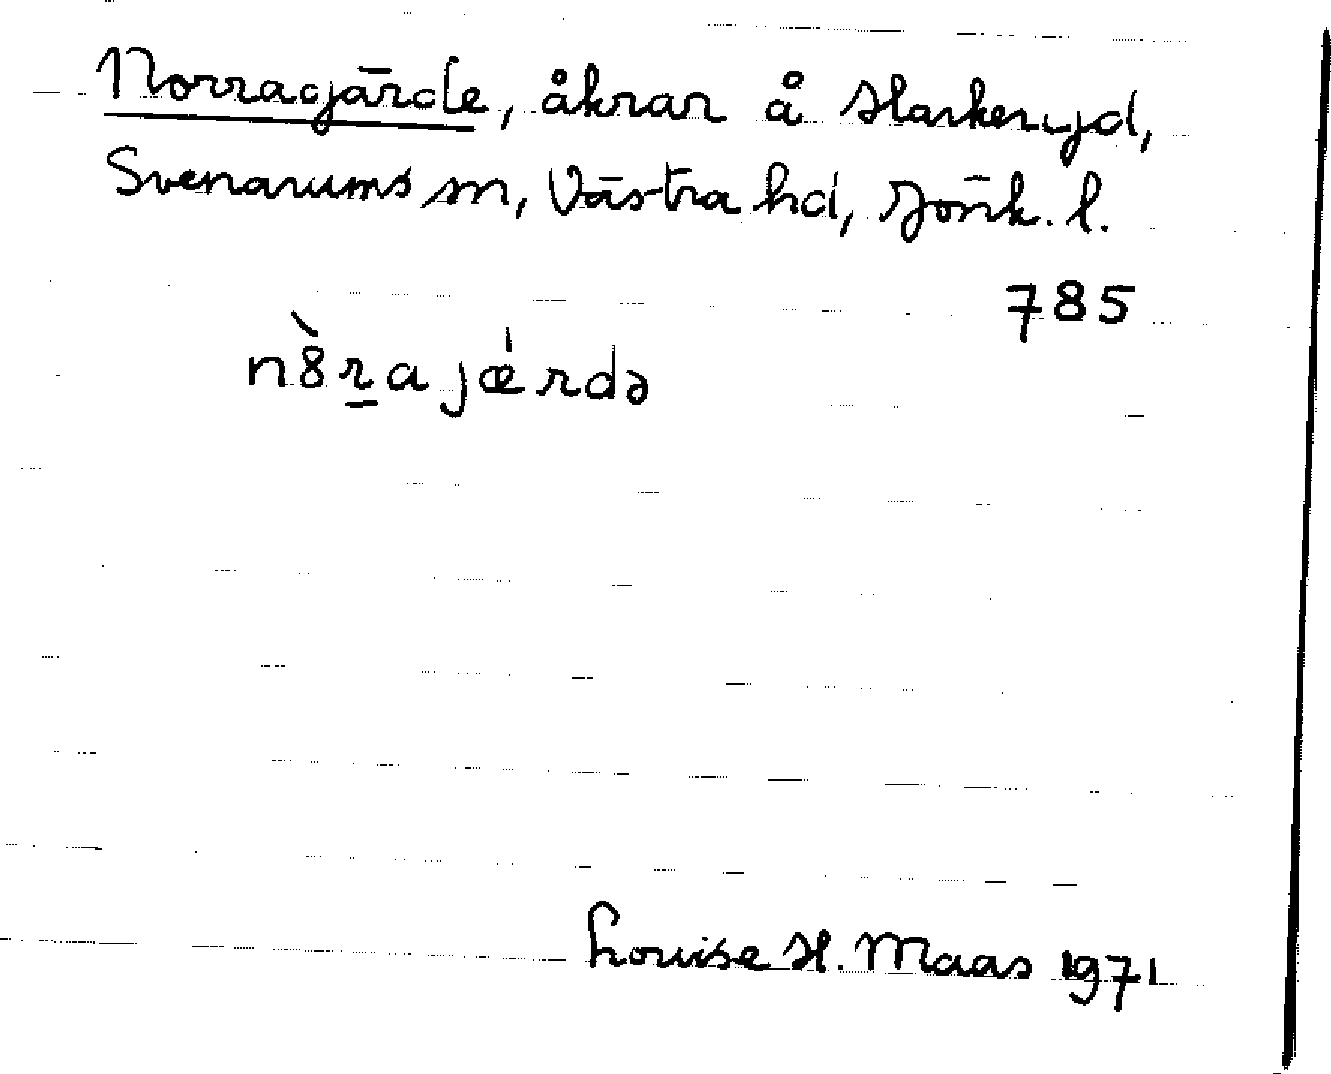 Norragärde, åkrar å Harkeryd,
Svenarums sn, Västra hd, Jönk. l.
785
nȍ8ra jǽrdə
Louise H. Maas 1971